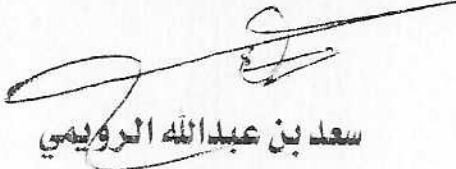 سعد بن عبدالله الرويمي